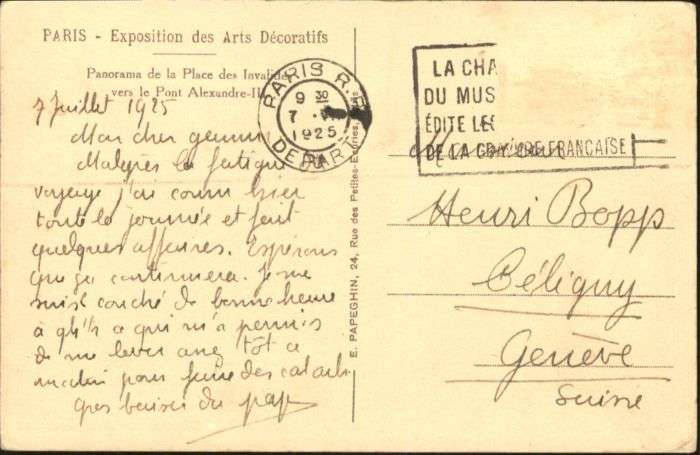 PARIS - Exposition des Arts Décoratifs
Panorama de la Place des Invalides
vers le Pont Alexandre-III
7 juillet 1925
Mon cher
Malgrés la fatigue
voyage j'ai couru hier
toute la journée et fait
quelques affaires. Espérons
que ça continuera. Je me
suis couché de bonne heure
à ce qui m'a permis
de me lever assez tôt ce
matin pour faire des
Gros baisers du papa
PARIS R.P.
9 30
7
1925
DEPART
E. PAPEGHIN, 24, Rue des Petites-Ecuries, Paris
LA CHA
DU MUS
ÉDITE LES
DE LA GRAVURE FRANCAISE
Henri Bopp
Céligny
Genève
Suisse